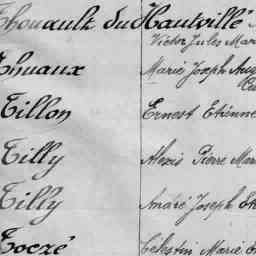 Thouault du Hautville
Victor Jules Mari
Thuaux Marie Joseph Aug
Tillon Ernest Etienne
Tilly Alexis Pierre Mar
Tilly André Joseph Et
Toczé Célestin Marie